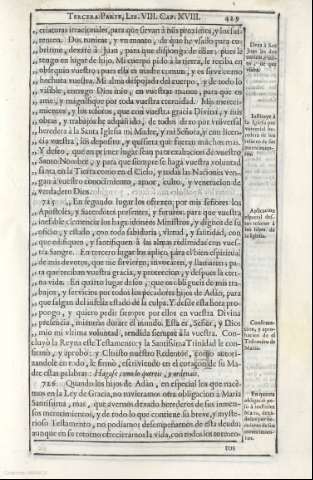 TERCERA PARTE, LIB. VIII. CAP. XVIII. 429
criaturas irracionales, para que sirvan à sus proximos, y los sustenten.
Dos tunicas, y un manto, de que he usado para cubrirme,
dexarè à Juan, para que disponga de ellas, pues le
tengo en lugar de hijo. Mi cuerpo pido à la tierra, le reciba, en
obsequio vuestro; pues ella es madre comun, y os sirve como
hechura vuestra. Mi alma despojada del cuerpo, y de todo lo
visible, entrego Dios mio, en vuestras manos, para que os
ame, y magnifique por toda vuestra eternidad. Mis merecimientos,
y los tesoros, que con vuestra gracia Divina, y mis
obras, y trabajos he adquirido, de todos dexo por universal
heredera à la Santa Iglesia mi Madre, y mi Señora, y con licencia
vuestra, los deposito, y quisiera que fueran muchos mas.
Y deseo, que en primer lugar sean para exaltacion de vuestro
Santo Nombre, y para que siempre se haga vuestra voluntad
santa en la Tierra como en el Cielo, y todas las Naciones vengan
à vuestro conocimiento, amor, culto, y veneracion de
verdadero Dios.
725. En segundo lugar los ofrezco, por mis señores los
Apostoles, y Sacerdotes presentes, y futuros, para que vuestra
inefable clemencia los haga idoneos Ministros, y dignos de su
oficio, y estado, con toda sabiduria, virtud, y santidad, con
que edifiquen, y santifiquen à las almas redimidas con vuestra
Sangre. En tercero lugar los aplico, para el bien espiritual
de mis devotos, que me sirvieren, invocaren, y llamaren; para
que reciban vuestra gracia, y proteccion, y despues la eterna
vida. En quarto lugar deseo, que os obligueis de mis trabajos,
y servicios por todos los pecadores hijos de Adàn, para
que salgan del infeliz estado de la culpa. Y desde esta hora propongo,
y quiero pedir siempre por ellos en vuestra Divina
presencia, mientras durare el mundo. Esta es, Señor, y Dios
mio mi ultima voluntad, rendida siempre à la vuestra. Concluyò
la Reyna este Testamento; y la Santisima Trinidad le confirmò,
y aprobò; y Christo nuestro Redentor, como autorizandole
en todo, le firmò, escriviendo en el corazon de su Madre
estas palabras: Hagase como lo quereis, y ordenais.
726. Quando los hijos de Adàn, en especial los que nacemos
en la Ley de Gracia, no tuvieramos otra obligacion à Maria
Santisima, mas, que avernos dexado herederos de sus inmensos
merecimientos, y de todo lo que contiene su breve, y mysterioso
Testamento, no podiamos desempeñarnos de esta deuda;
aunque en su retorno ofrecieramos la vida, con todos los tormentos
Dexa à San
Juan las dos
Instituye à
la Iglesia por
universal heredera
Aplicacion
la Iglesia.
Confirmacion,
y aprobacion
del
Testamento de
Maria.